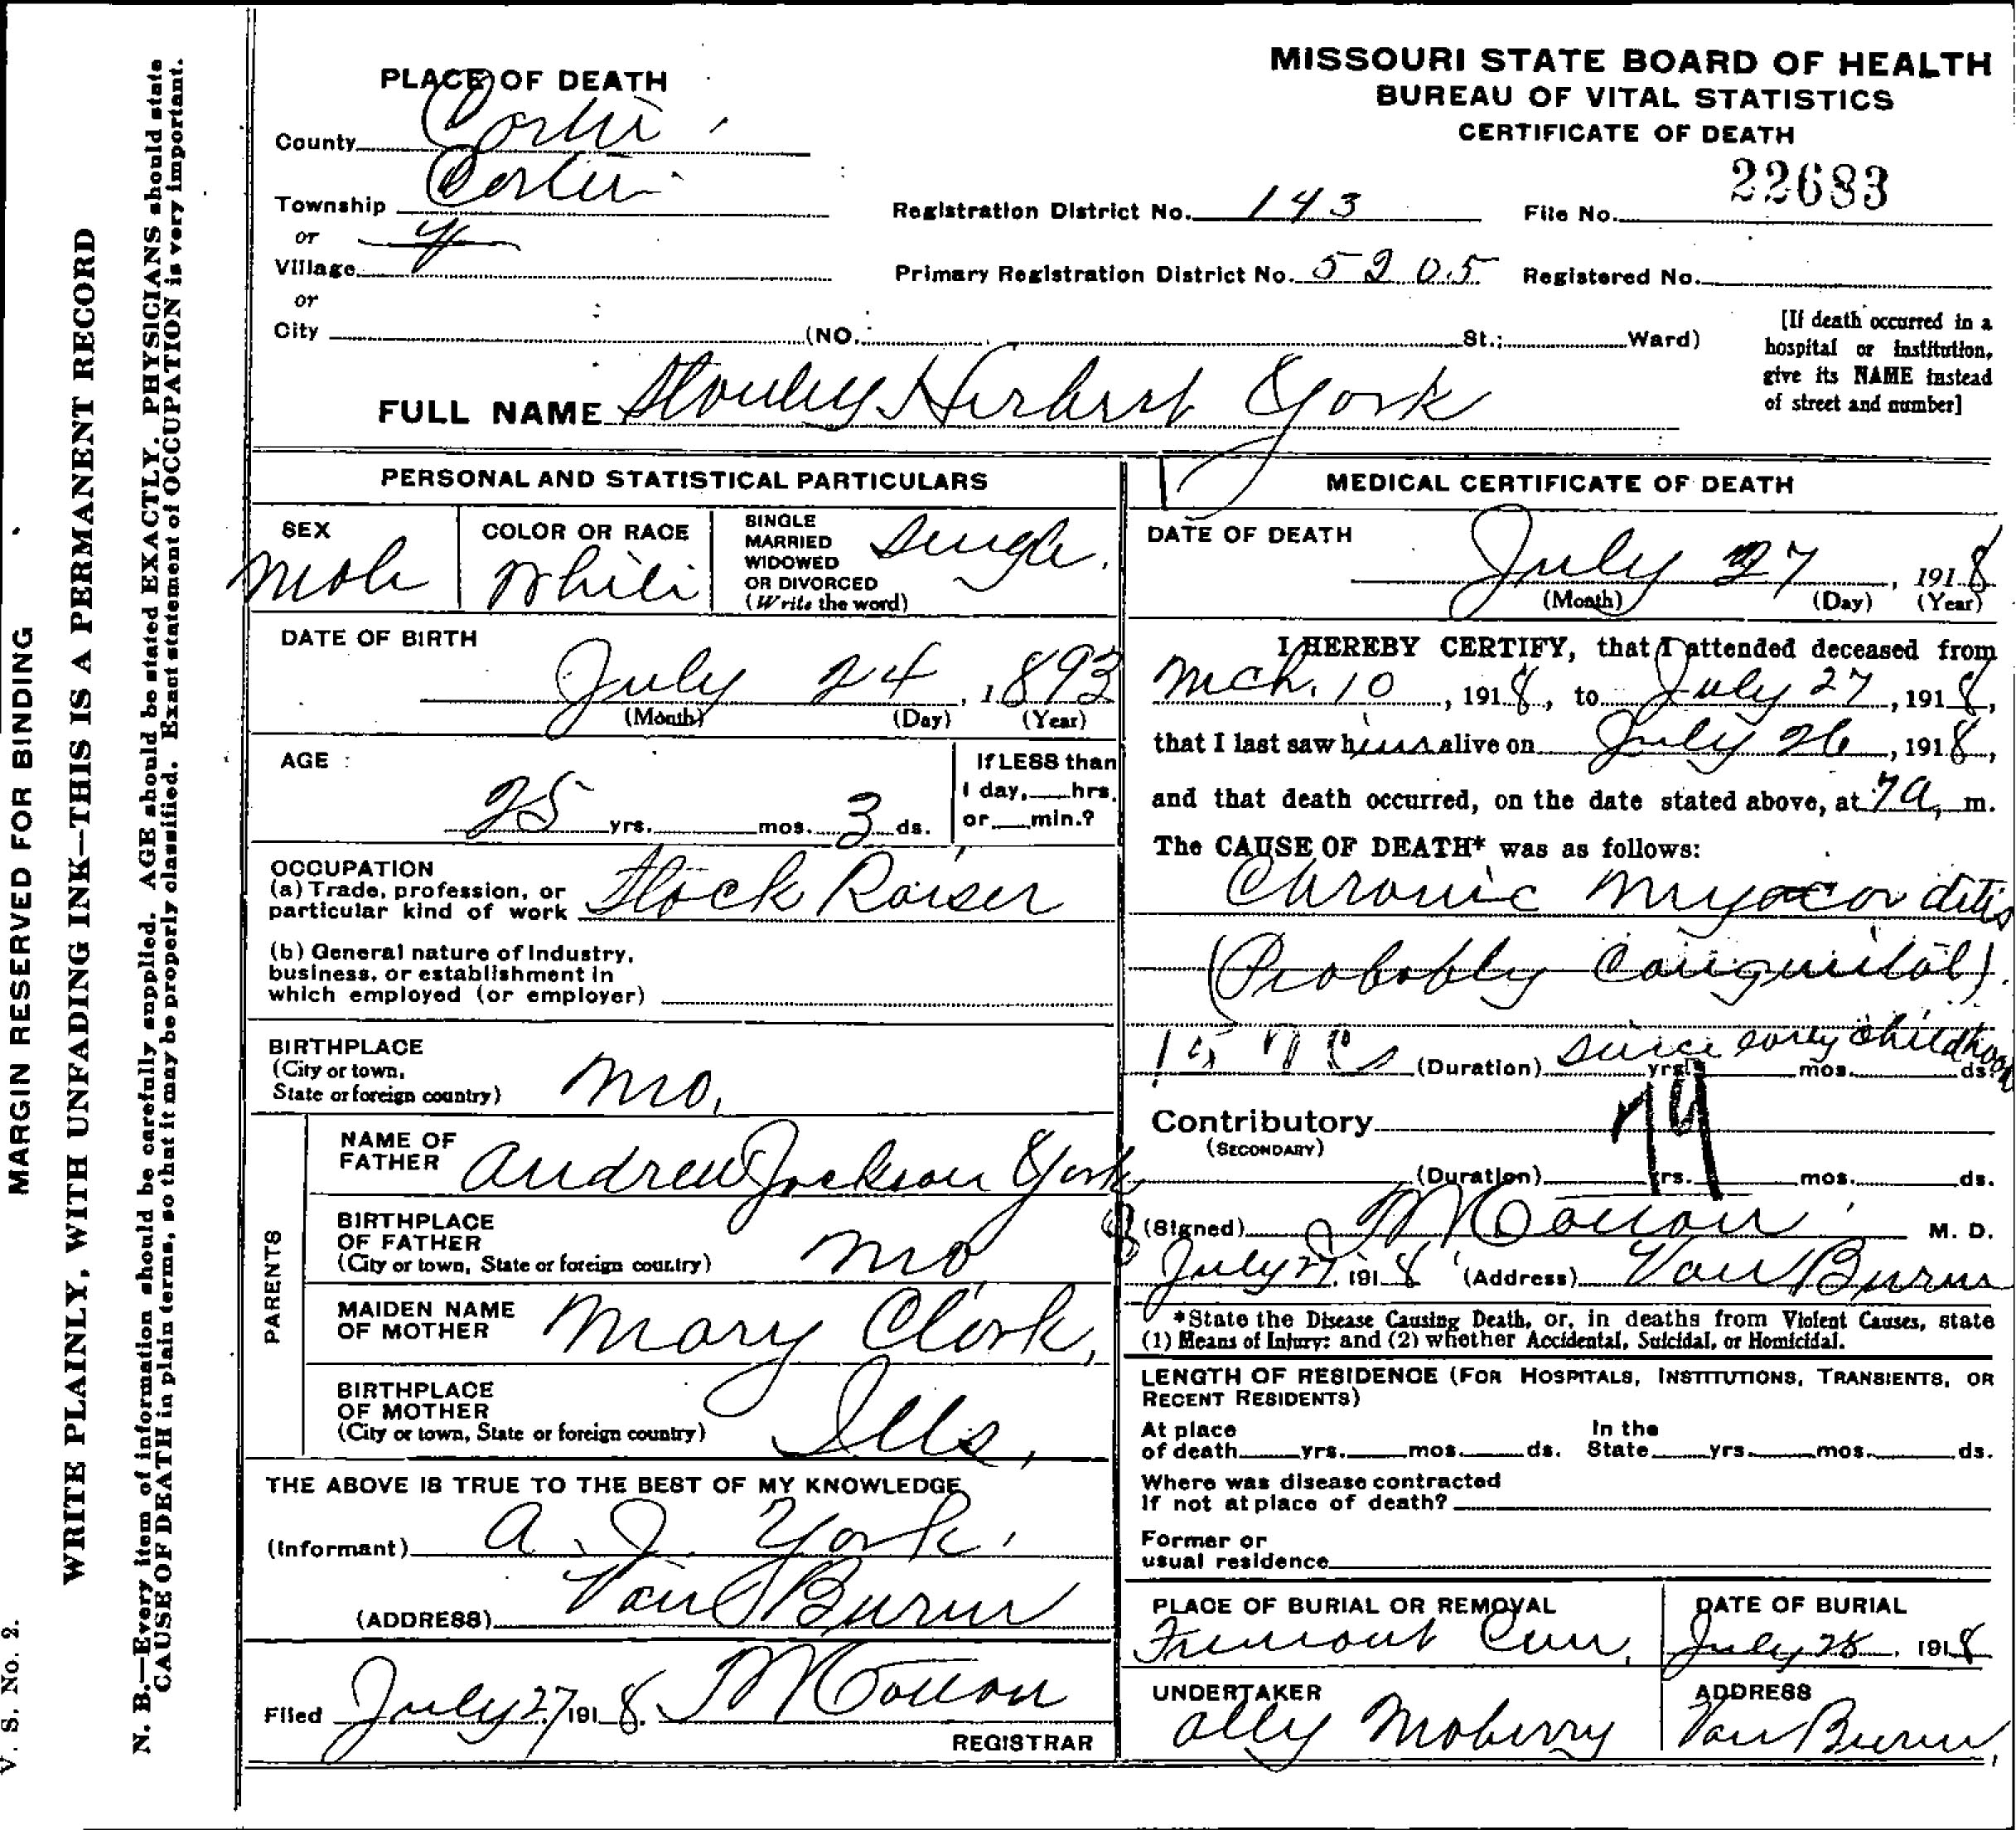 MISSOURI STATE BOARD OF HEALTH
BUREAU OF VITAL STATISTICS
CERTIFICATE OF DEATH
PLACE OF DEATH
County Carter
Township Carter
or
Village
or
City (NO. St.; Ward)
Registration District No. 143
File No. 22683
Primary Registration District No. 5205
Registered No.
[If death occurred in a
hospital or institution,
give its NAME instead
of street and number]
FULL NAME Stanley Herbert York
PERSONAL AND STATISTICAL PARTICULARS
SEX
Male
COLOR OR RACE
White
SINGLE
MARRIED
WIDOWED
OR DIVORCED
(Write the word)
Single.
DATE OF BIRTH
July 24, 1893
(Month) (Day) (Year)
AGE :
25 yrs. mos. 3 ds.
If LESS than
1 day, hrs.
or min.?
OCCUPATION
(a) Trade, profession, or
particular kind of work Stock Raiser
(b) General nature of Industry,
business, or establishment in
which employed (or employer)
BIRTHPLACE
(City or town,
State or foreign country) Mo.
PARENTS
NAME OF
FATHER Andrew Jackson York
BIRTHPLACE
OF FATHER
(City or town, State or foreign country) Mo
MAIDEN NAME
OF MOTHER Mary Clark,
BIRTHPLACE
OF MOTHER
(City or town, State or foreign country) Ills.
THE ABOVE IS TRUE TO THE BEST OF MY KNOWLEDGE
(Informant) A. J. York.
(ADDRESS) Van Buren
Filed July 27 1918.
REGISTRAR
MEDICAL CERTIFICATE OF DEATH
DATE OF DEATH
July 27, 1918
(Month) (Day) (Year)
I HEREBY CERTIFY, that I attended deceased from
Mch. 10, 1918, to July 27, 1918,
that I last saw him alive on July 26, 1918,
and that death occurred, on the date stated above, at 7 a, m.
The CAUSE OF DEATH* was as follows:
Chronic Myocarditis
(Probably Congenital)
(Duration) since early childhood yrs. mos. ds.
Contributory
(SECONDARY)
(Duration) yrs. mos. ds.
(Signed) M. D.
July 27, 1918 (Address) Van Buren
*State the Disease Causing Death, or, in deaths from Violent Causes, state
(1) Means of Injury; and (2) whether Accidental, Suicidal, or Homicidal.
LENGTH OF RESIDENCE (FOR HOSPITALS, INSTITUTIONS, TRANSIENTS, OR
RECENT RESIDENTS)
At place
of death yrs. mos. ds.
In the
State yrs. mos. ds.
Where was disease contracted
If not at place of death?
Former or
usual residence
PLACE OF BURIAL OR REMOVAL
Fremont Cem.
DATE OF BURIAL
July 28, 1918
UNDERTAKER
Ally Moberry
ADDRESS
Van Buren,
MARGIN RESERVED FOR BINDING
WRITE PLAINLY, WITH UNFADING INK—THIS IS A PERMANENT RECORD
N. B.—Every item of information should be carefully supplied. AGE should be stated EXACTLY. PHYSICIANS should state
CAUSE OF DEATH in plain terms, so that it may be properly classified. Exact statement of OCCUPATION is very important.
V. S. No. 2.